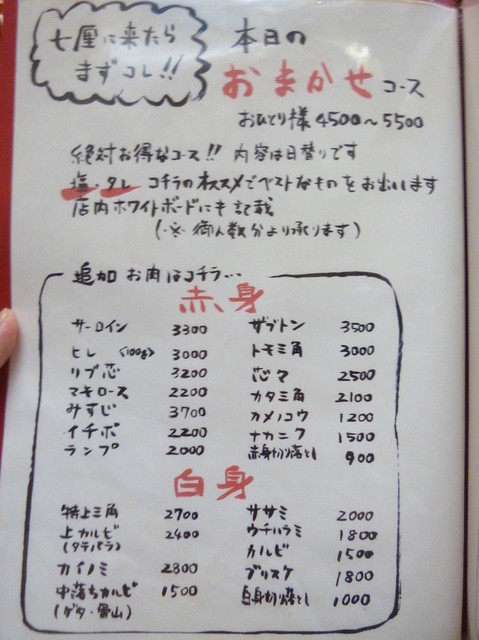 七厘に来たら
まずコレ!!
本日の
おまかせコース
おひとり様4500〜5500
絶対お得なコース!! 内容は日替りです
塩・タレ コチラのオススメでベストなものをお出しします
店内ホワイトボードにも記載
(※ 御人数分より承ります)
追加 お肉はコチラ...
赤身
サーロイン 3300
ヒレ (100g) 3000
リブ芯 3200
マキロース 2200
みすじ 3700
イチボ 2200
ランプ 2000
ザブトン 3500
トモミ角 3000
芯々 2500
カタミ角 2100
カメノコウ 1200
ナカニク 1500
赤身切り落とし 900
白身
特上三角 2700
上カルビ 2400
(タテバラ)
カイノミ 2800
中落ちカルビ 1500
(ゲタ・雪山)
ササミ 2000
ウチハラミ 1800
カルビ 1500
ブリスケ 1800
白身切り落とし 1000